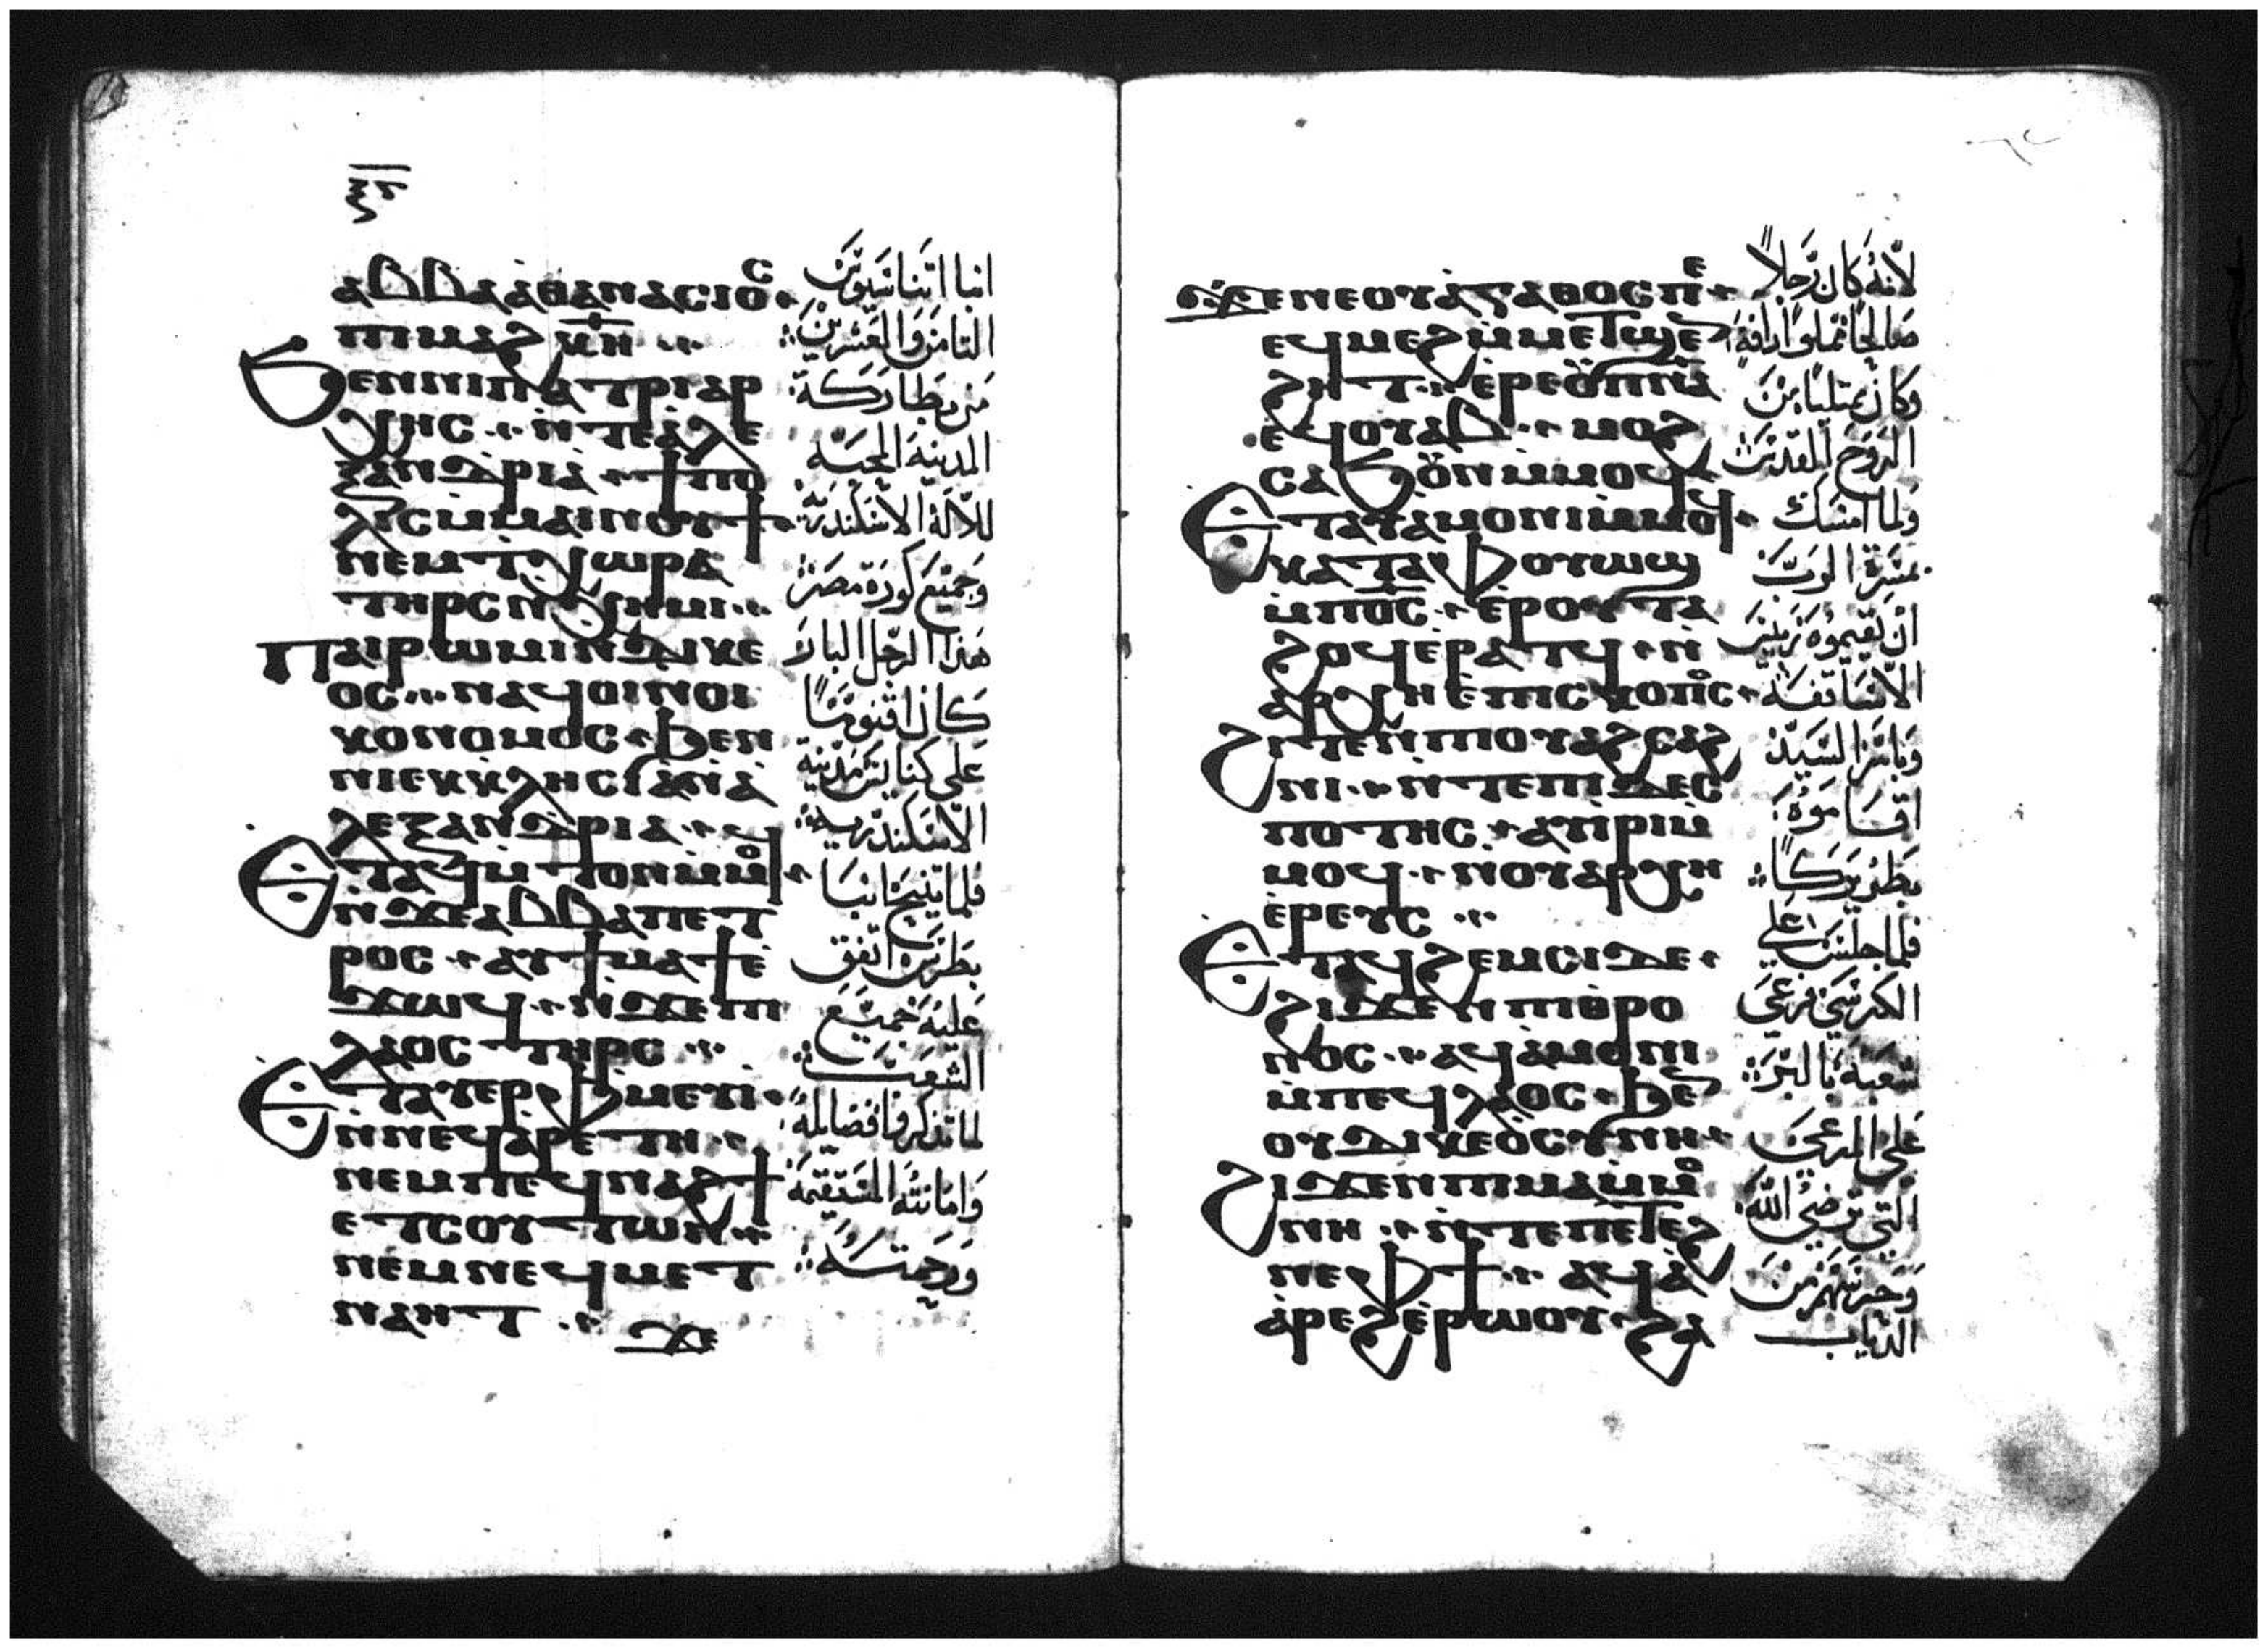 ⲝⲋ
ⲁⲃⲃⲁⲁ̀ⲑⲁⲛⲁⲥⲓⲟⲥ
ⲡⲓⲙⲁϩⲕⲏ
ϧⲉⲛⲛⲓⲡⲁⲧⲣⲓⲁⲣ
ⲭⲏⲥ ⲛ̀ⲧⲉⲁ̀ⲗⲉ
ⲝⲁⲛⲇⲣⲓⲁ ϯⲡⲟ
ⲗⲓⲥⲙ̀ⲙⲁⲓⲛⲟⲩϯ
ⲛⲉⲙⲧ̀ⲭⲱⲣⲁ
ⲧⲏⲣⲥ ⲛ̀ⲭⲏⲙⲓ
ⲡⲁⲓⲣⲱⲙⲓⲛ̀ⲇⲓⲕⲉ
ⲟⲥ ⲛⲁϥⲟⲓⲛ̀ⲟⲓ
ⲕⲟⲛⲟⲙⲟⲥ ϧⲉⲛ
ⲛⲓⲉⲕⲕⲗⲏⲥⲓⲁ̀ⲛ̀ⲁ
ⲗⲉⲝⲁⲛⲇⲣⲓⲁ
ⲉⲧⲁϥⲙ̀ⲧⲟⲛⲙ̀ⲙⲟϥ
ⲛ̀ϫⲉⲁⲃⲃⲁⲡⲉⲧ
ⲣⲟⲥ ⲁⲩϯⲙⲁϯⲉ̀
ϫⲱϥ ⲛ̀ϫⲉⲡⲓ
ⲗⲁⲟⲥ ⲧⲏⲣϥ
ⲉⲧⲁⲩⲉⲣⲫ̀ⲙⲉⲩⲓ
ⲛ̀ⲛⲉϥⲁ̀ⲣⲉⲧⲏ
ⲛⲉⲙⲡⲉϥⲛⲁϩϯ
ⲉⲧⲥⲟⲩⲧⲱⲛ
ⲛⲉⲙⲛⲉϥⲙⲉⲧ
ⲛⲁⲏⲧ
ϫⲉ
انبا اتناسيوس
التامن والعشرين
من بطاركة
المدينة المحبة
للاله الاسكندرية
وجميع كورة مصر
هذا الرجل البار
كان اقنوما
على كنايس مدينة
الاسكندرية
فلما تنيح انبا
بطرس اتفق
عليه جميع
الشعب
لما تذكروا فضايله
وامانته المستقيمة
ورحمته
ϫⲉⲛⲉⲟⲩⲁ̀ⲅⲁⲑⲟⲥⲡⲉ
ⲉϥⲙⲉϩⲙ̀ⲙⲉⲧϣⲉⲛ
ϩⲏⲧ ⲉ̀ⲣⲉⲟ̀ⲡⲓⲡⲛⲁ
ⲉϥⲟⲩⲁⲃ ⲙⲟϩ
ⲥⲁϧⲟⲩⲛⲙ̀ⲙⲟϥ
ⲉⲧⲁⲩⲁ̀ⲙⲟⲛⲓⲙ̀ⲙⲟϥ
ⲕⲁⲧⲁⲫ̀ⲟⲩⲱϣ
ⲙ̀ⲡⲟⲥ ⲉ̀ⲣⲟⲩⲧⲁ
ϩⲟϥⲉ̀ⲣⲁⲧϥ ⲛ̀
ⲁⲣⲭⲏⲉ̀ⲡⲓⲥⲕⲟⲡⲟⲥ
ϩⲓⲧⲉⲛⲡ̀ⲟⲩⲁϩⲥⲁϩ
ⲛⲓ ⲛ̀ⲧⲉⲡⲓⲇⲉⲥ
ⲡⲟⲧⲏⲥ ⲁⲩⲓⲣⲓⲙ̀
ⲙⲟϥ ⲛ̀ⲟⲩⲁⲣⲭⲏ
ⲉ̀ⲣⲉⲩⲥ
ⲉⲧⲁϥϩⲉⲙⲥⲓⲇⲉ
ϩⲓϫⲉⲛⲡⲓⲑⲣⲟ
ⲛⲟⲥ ⲁϥⲁ̀ⲙⲟⲛⲓ
ⲙ̀ⲡⲉϥⲗⲁⲟⲥ ϧⲉⲛ
ⲟⲩⲇⲓⲕⲉⲟ̀ⲥⲩⲛⲏ
ϩⲓϫⲉⲛⲡⲓⲙⲁⲙ̀ⲙⲟ
ⲛⲏ ⲛ̀ⲧⲉⲡⲉⲧⲉϩ
ⲛⲉⲫϯ ⲁϥⲁ̀
ⲁ̀ⲣⲉϩⲉ̀ⲣⲱⲟⲩ ϩⲁ
لانه كان رجلا
صالحا مملوا رافة
وكان ممتليا من
الروح المقدس
ولما امسك
بمسرة الرب
ان يقيموه رييس
الاساقفة
وبامر السيد
اقاموه
بطريركا
فلما جلس على
الكرسي فرعى
شعبه بالبر
على المرعى
التي ترضي الله
وحرسهم من
الدياب